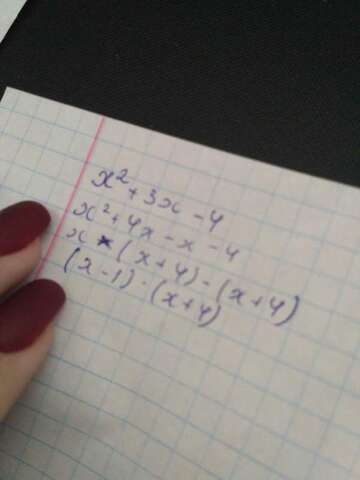 x² + 3x - 4
x² + 4x - x - 4
x * (x + 4) - (x + 4)
(x - 1) · (x + 4)